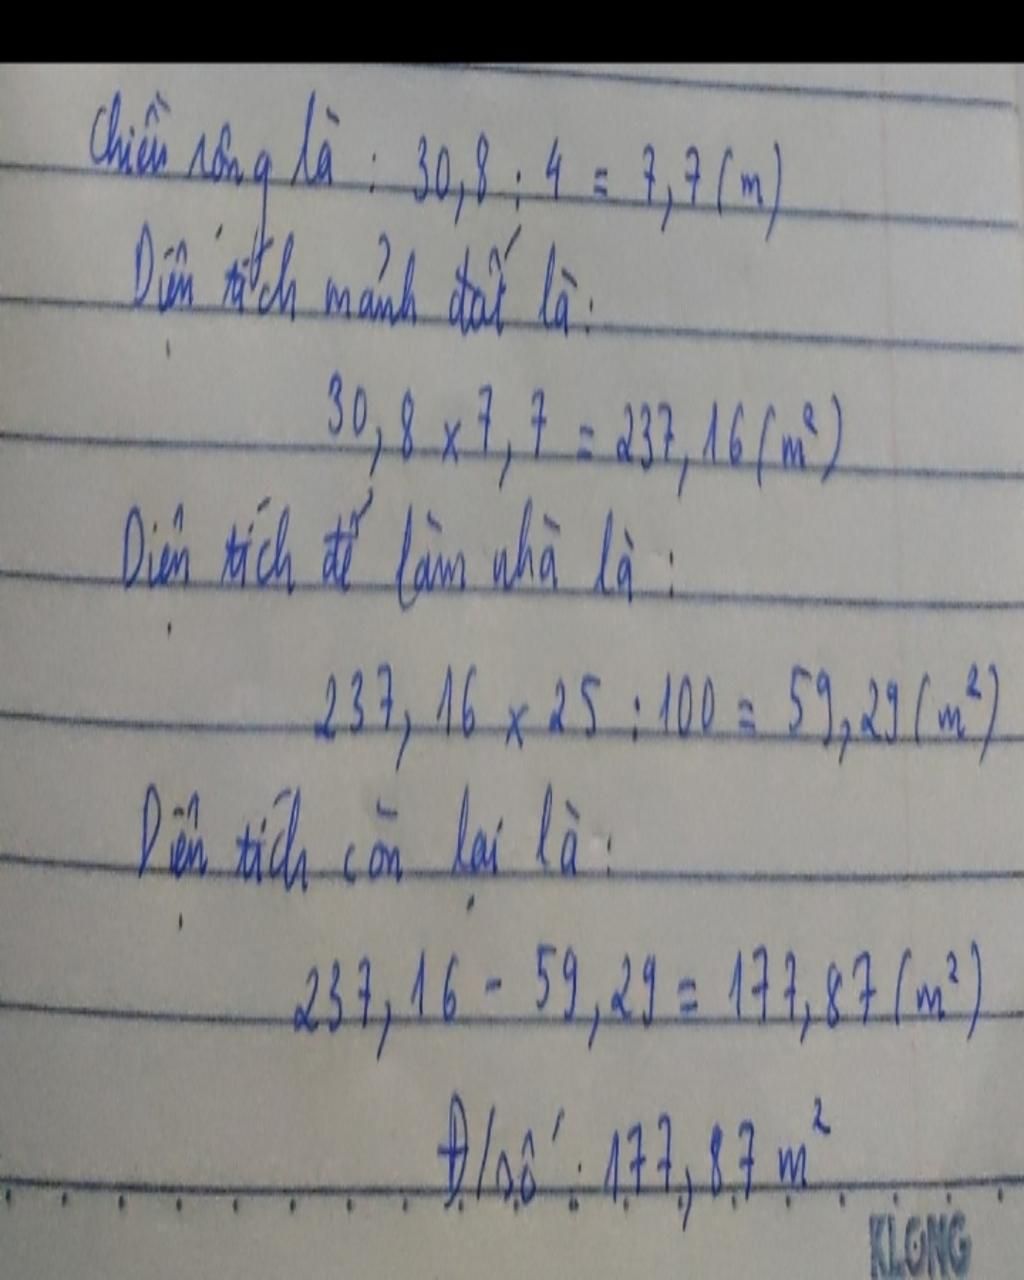 Chiều rộng là : 30,8 : 4 = 7,7 (m)
Diện tích mảnh đất là :
30,8 x 7,7 = 237,16 (m²)
Diện tích để làm nhà là :
237,16 x 25 : 100 = 59,29 (m²)
Diện tích còn lại là :
237,16 - 59,29 = 177,87 (m²)
Đ/số : 177,87 m²
KLONG